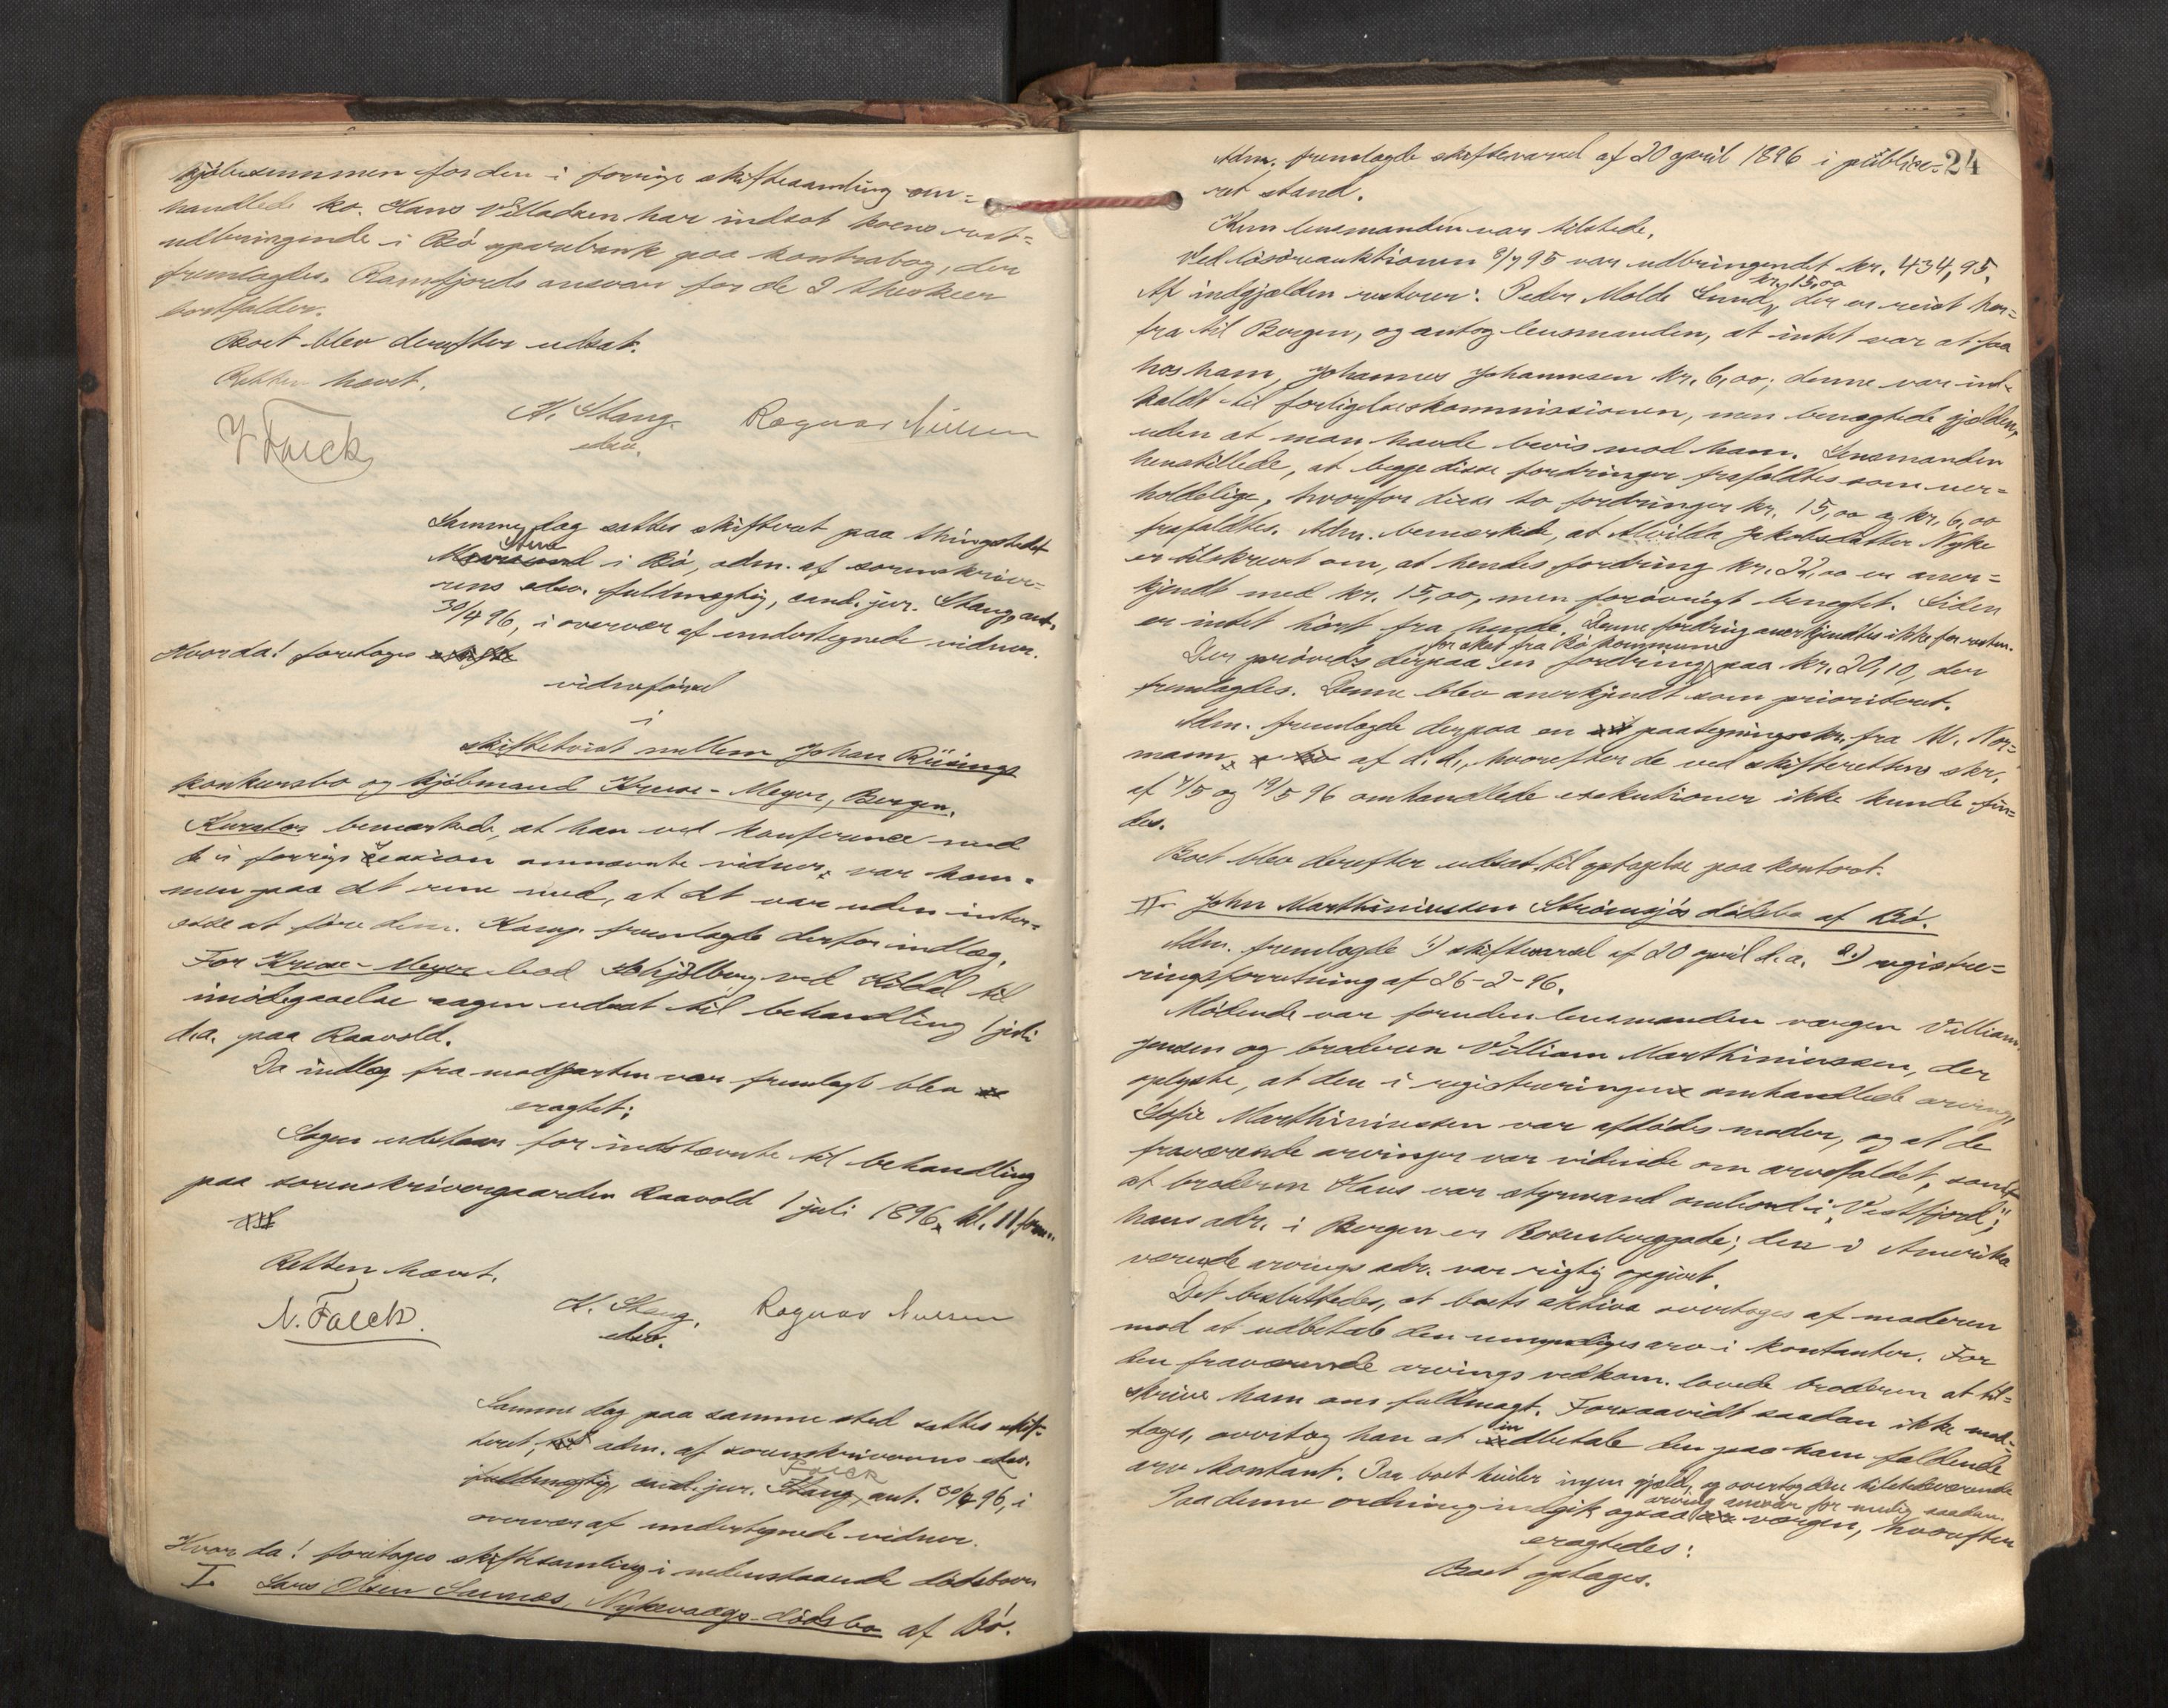 kjöbesummen for den i forrige skiftesamling om=
handlede ko. Hans Villadsen har indsat koens rest-
udbringende i Bö sparebank paa kontrabog, der
fremlagdes. Ramfjords ansvar for de 2
bortfalder.
Boet blev derefter udsat.
Retten hævet.
Falck
K. Stang. Ragnar Nilsen
edsv.
Samme dag sattes skifteret paa thingstedet
Steine i Bö, adm. af sorenskrive=
rens edsv. fuldmægtig, cand. jur. Stang, ant.
30/4 96, i overvær af undertegnede vidner.
Hvor da! foretoges skifte
vidneførsel
i
skiftetvist mellem Johan Rüsings
konkursbo og kjöbmand Kruse-Meyer, Bergen.
Kurator bemærkede, at han ved konference med
de i forrige session omnævnte vidner, var kom-
men paa det rene med, at det var uden inter-
esse at före dem. Komp. fremlagde derfor indlæg.
For Kruse-Meyer bad ved Kildal til
imødegaaelse sagen udsat til behandling 1 juli
d.a. paa Raavold.
Da indlæg fra modparten var fremlagt blev
eragtet:
Sagen udstaar for indstævnte til behandling
paa sorenskrivergaarden Raavold 1 juli 1896, kl. 11 form.
Retten hævet.
N. Falck. K. Stang. Ragnar Nilsen
edsv.
Samme dag paa samme sted sattes skif-
teret, adm. af sorenskriverens edsv.
Falck
fuldmægtig, cand. jur. Stang, ant. 30/4 96, i
overvær af undertegnede vidner.
Hvor da! foretoges skiftesamling i nedenstaaende dödsboer
I. Lars Olsen Sannes, Nykvaags dödsbo af Bö.
24
Adm. fremlagde skiftevarsel af 20 april 1896 i publice=
ret stand.
Kun lensmanden var tilstede.
Ved lösöreauktionen 8/7 95 var udbringendet kr. 434,95.
kr. 15,00
Af indgjælden resterer: Peder Molde Lund, der er reist her=
fra til Bergen, og antog lensmanden, at intet var at faa
hos ham, Johannes Johannesen kr. 6,00; denne var ind-
kaldt til forligelseskommissionen, men benægtede gjælden,
uden at man havde bevis mod ham. Lensmanden
henstillede, at begge disse fordringer frafaldtes som uer=
holdelige, hvorfor disse to fordringer kr. 15,00 og kr. 6,00
frafaldtes. Adm. bemærkede, at Alvilda Jakobsdatter Nyke
er tilskrevet om, at hendes fordring kr. 22,00 er aner=
kjendt med kr. 15,00, men forövrigt benægtet. Siden
er intet hört fra hende. Denne fordring anerkjendtes ikke for resten.
for skat fra Bö kommune
Der prövedes derpaa en fordring paa kr. 20,10, der
fremlagdes. Denne blev anerkjendt som prioriteret.
Adm. fremlagde derpaa en paategningsskr. fra M. Nor=
mann af d.d., hvorefter de ved skifterettens skr.
af 4/5 og 19/5 96 omhandlede exekutioner ikke kunde fin=
des.
Boet blev derefter udsat til optagelse paa kontoret.
II. John Marthiniussen Strömsjös dödsbo af Bö.
Adm. fremlagde 1) skiftevarsel af 20 april d.a. 2) registre=
ringsforretning af 26-2-96.
Mödende var foruden lensmanden værgen Villiam
Jensen og broderen Villiam Marthiniussen, der
oplyste, at den i registreringen omhandlede arving,
Sofie Marthiniussen var afdödes moder, og at de
fraværende arvinger var vidende om arvefaldet, samt
at broderen Hans var styrmand ombord i "Vestfjord";
hans adr. i Bergen er Rosenberggade; den i Amerika
værende arvings adr. var rigtig opgivet.
Det besluttedes, at boets aktiva overtoges af moderen
mod at udbetale den umyndiges arv i kontanter. For
den fraværende arvings vedkom. lovede broderen at til=
skrive ham om fuldmagt. Forsaavidt saadan ikke mod=
in
toges, overtog han at dbetale den paa ham faldende
arv kontant. Paa boet hviler ingen gjæld, og overtog den tilstedeværende
arving ansvar for mulig saadan
Paa denne ordning indgik ogsaa værgen, hvorefter
eragtedes:
Boet optages.